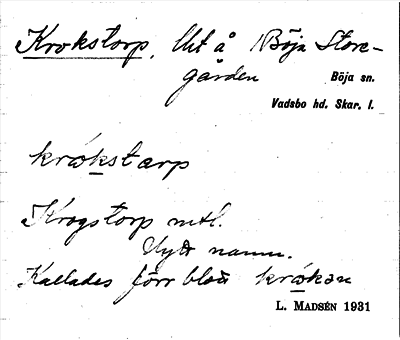 Krokstorp, Ut å Böja Store-
gården
Böja sn.
Vadsbo hd. Skar. l.
kråkstarp
Krogstorp mtl.
Nytt namn.
Kallades förr blott kråkan
L. MADSÉN 1931